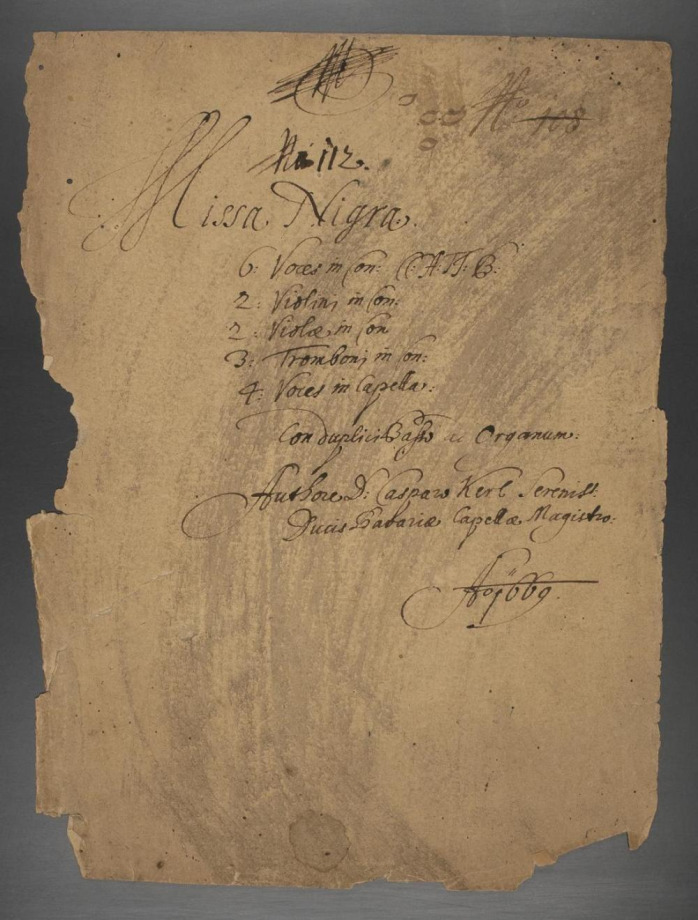 No 108
No 112.
Missa Nigra.
6: Voces in Con: CC: A: TT: B:
2: Violini in Con:
2: Violæ in Con
3: Tromboni in Con:
4: Voces in Capella:
Con duplici Basso ac Organum:
Authore D: Casparo Kerl Sereniss:
Ducis Bavariæ Capellæ Magistro:
Ao 1669.